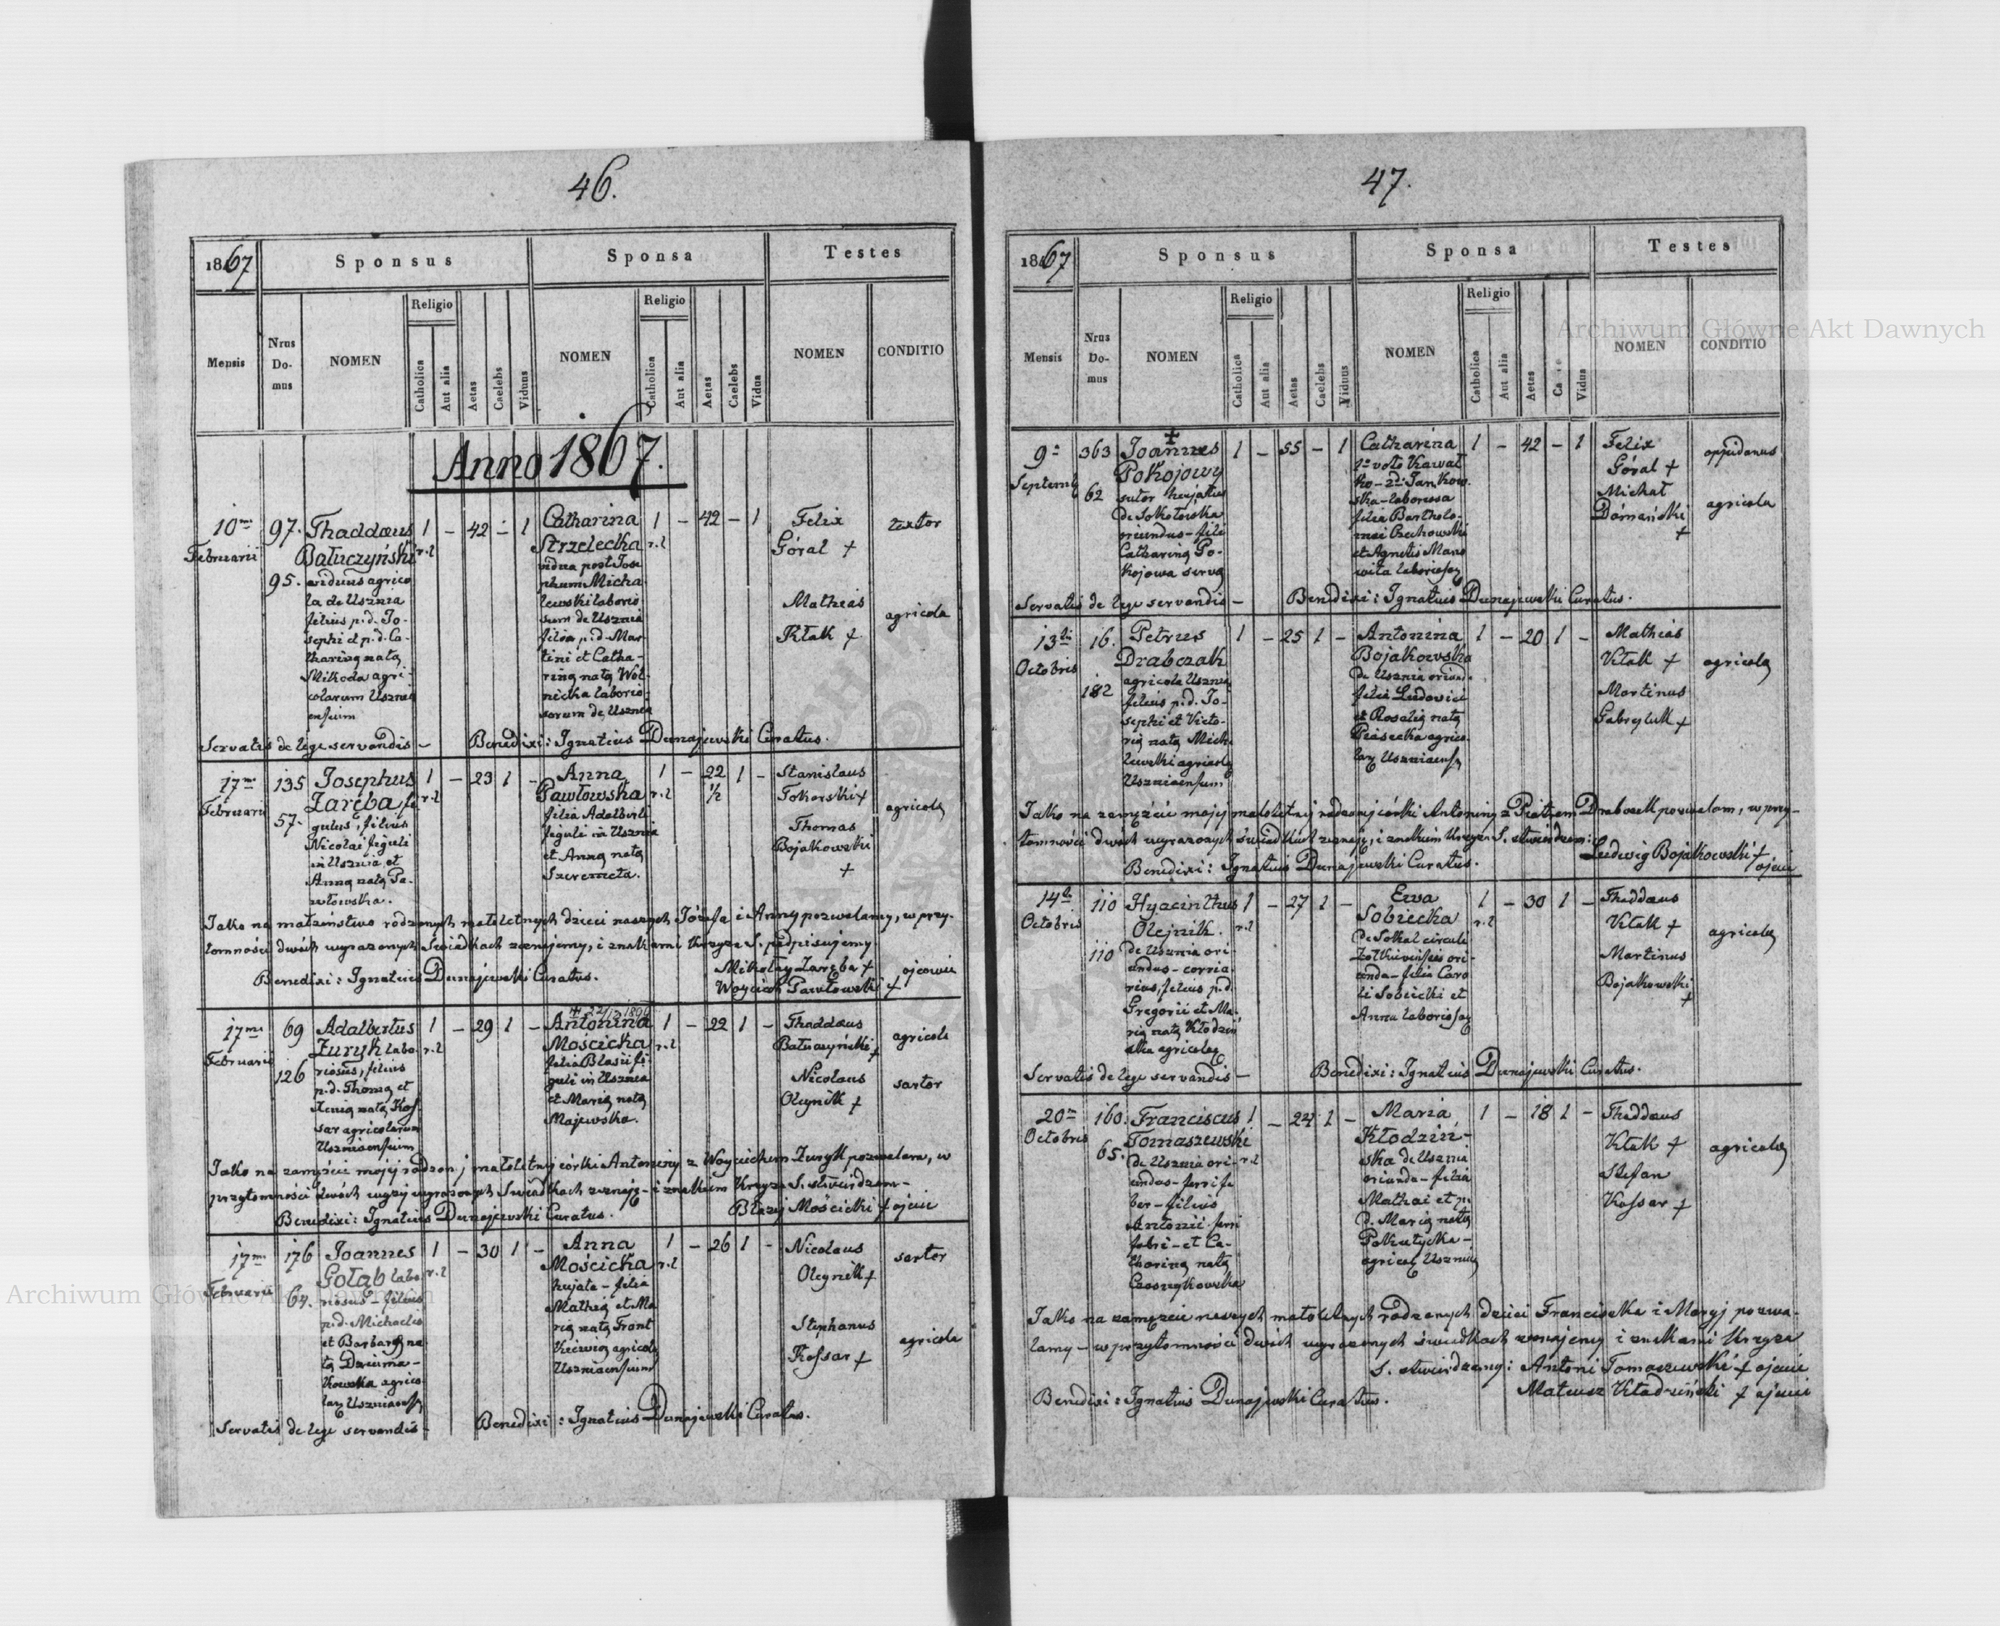 46.
1867
Sponsus
Sponsa
Testes
Mensis
Nrus Domus
NOMEN
Religio
Catholica
Aut alia
Aetas
Caelebs
Viduus
NOMEN
Religio
Catholica
Aut alia
Aetas
Caelebs
Vidua
NOMEN
CONDITIO
Anno 1867.
10ma
Februarii
97.
95.
Thaddæus
Bałuczyński
viduus agrico
la de Usznia
filius p.d. Jo-
sephi et p.d. Ca-
tharina nata
Mikoda agri-
colarum Uszni
ensium
1 r.l – 42 – 1
Catharina
Strzelecka
vidua post Jose
phum Micha
lewski laborio
sum de Usznia
filia p.d. Mar-
tini et Catha-
rina nata Wol
nicka laborio
sorum de Usznia
1 r.l – 42 – 1
Felix
Góral +
textor
Mathias
Kłak +
agricola
Servatis de lege servandis –
Benedixi: Ignatius Dunajewski Curatus.
17ma
Februarii
135
57.
Josephus
Zaręba fi
gulus, filius
Nicolai figuli
in Usznia et
Anna nata Pa-
włowska.
1 r.l – 23 1 –
Anna
Pawłowska
filia Adalberti
figuli in Usznia
et Anna nata
Szeremeta.
1 r.l – 22 ½ 1 –
Stanislaus
Tokarski +
Thomas
Bojakowski
+
agricola
Jako na małżeństwo rodzonych małoletnych dzieci naszych Józefa i Anny pozwalamy, w przy-
tomności dwóch wyrażonych Świadkach zeznajemy, i znakami Krzyża S. podpisujemy
Mikołay Zaręba +
Woyciech Pawłowski +
ojcowie
Benedixi: Ignatius Dunajewski Curatus.
17ma
Februarii
69
126
Adalbertus
Żuryk labo
riosus, filius
p.d. Thoma et
Xenia nata Kos
sar agricolarum
Uszniaensium
1 r.l – 29 1 –
Antonina
Mościcka
filia Blasii fi
guli in Usznia
et Maria nata
Majewska.
1 r.l – 22 1 –
Thaddæus
Bałuczyński
+
agricola
Nicolaus
Oleynik +
sartor
Jako na zamęście mojéj rodzonéj małoletnéj córki Antoniny z Woyciechem Żuryk pozwalam, w
przytomności dwóch wyżéj wyrażonych Świadkach zeznaję – i znakiem Krzyża S. stwierdzam –
Błażéj Mościcki + ojciec
Benedixi: Ignatius Dunajewski Curatus.
17ma
Februarii
176
64.
Joannes
Gołąb labo
riosus – filius
p.d. Michaelis
et Barbara na
ta Dziuma-
kowska agrico
lar Uszniaens
1 r.l – 30 1 –
Anna
Mościcka
hujate – filia
Mathia et Ma
ria nata Front
Kiewicz agricola
Uszniaensium
1 r.l – 26 1 –
Nicolaus
Oleynik +
sartor
Stephanus
Kossar +
agricola
Servatis de lege servandis –
Benedixi: Ignatius Dunajewski Curatus.
47.
1867
Sponsus
Sponsa
Testes
Mensis
Nrus Domus
NOMEN
Religio
Catholica
Aut alia
Aetas
Caelebs
Viduus
NOMEN
Religio
Catholica
Aut alia
Aetas
Vidua
NOMEN
CONDITIO
9a
Septemb
363
62
+
Joannes
Pokojowy
sutor hujatus
de Sokołowska
oriundus – filius
Catharina Po-
kojowa serva
1 – 55 – 1
Catharina
1o voto Kawał
ko – 2do Jankow
ska – laboriosa
filia Bartholo-
maei
et Agnetis
1 – 42 – 1
Felix
Góral +
oppidanus
Michał
Domański
+
agricola
Servatis de lege servandis –
Benedixi: Ignatius Dunajewski Curatus.
13tia
Octobris
16.
182
Petrus
Drabczak
agricola Uszniæ
filius p.d. Jo-
sephi et Victo-
ria nata Mich
lewski agricola
Uszniaensium
1 – 25 1 –
Antonina
Bojakowska
de Usznia oriund
filia Ludovici
et Rosalia nata
Piasecka agrico-
lar Uszniaensi
1 – 20 1 –
Mathias
Kłak +
Martinus
Gabryluk +
agricola
Jako na zamęźcie mojéj małoletnéj rodzonéj córki Antoniny z Piotrem Drabczak pozwalam, w przy-
tomności dwóch wyrażonych świadkach zeznaję, i znakiem Krzyża S. stwierdzam:
Ludwig Bojakowski +
ojciec
Benedixi: Ignatius Dunajewski Curatus.
14ta
Octobris
110
110
Hyacinthus
Olejnik.
de Usznia ori
undus – corria
rius, filius p.d.
Gregorii et Ma-
ria nata Kłodziń
ska agricolæ
1 r.l – 27 1 –
Ewa
Sobiecka
de Sokal circuli
Żółkiwiensis ori-
unda – filia Caro
li Sobiecki et
Anna laboriosa
1 r.l – 30 1 –
Thaddæus
Kłak +
Martinus
Bojakowski
+
agricola
Servatis de lege servandis –
Benedixi: Ignatius Dunajewski Curatus.
20ma
Octobris
160.
65.
Franciscus
Tomaszewski
de Usznia ori-
undus – ferri fa
ber – filius
Antonii ferri
fabri – et Ca-
tharina nata
Czoszykowska
1 r.l – 24 1 –
Maria
Kłodziń-
ska de Usznia
oriunda – filia
Mathæi et p.
d. Maria nata
Pokutycka –
agricol Uszniæ
1 – 18 1 –
Thaddæus
Kłak +
Stefan
Kossar +
agricola
Jako na zamęzcie naszych małoletnych rodzonych dzieci Franciszka i Maryj pozwa-
lamy – w przytomności dwóch wyrażonych świadkach zeznajemy i znakami Krzyża
S. stwierdzamy: Antoni Tomaszewski + ojciec
Mateusz Kłodziński + ojciec
Benedixi: Ignatius Dunajewski Curatus.
Archiwum Główne Akt Dawnych
Archiwum Główne Akt Dawnych